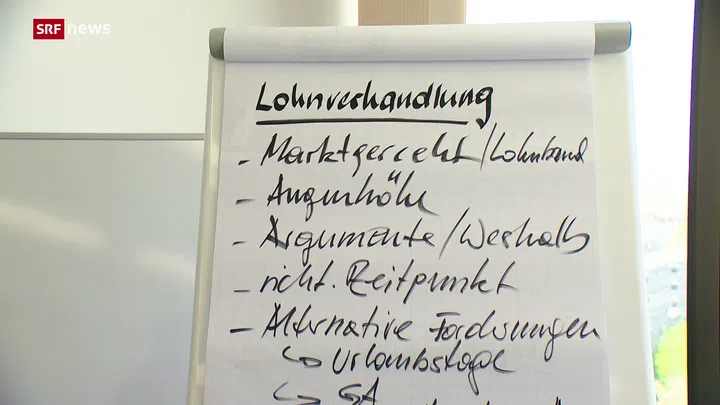 SRF news
Lohnverhandlung
- Marktgerecht/Lohnband
- Augenhöhe
- Argumente/Weshalb
- richt. Zeitpunkt
- Alternative Forderungen
↳ Urlaubstage
↳ GA